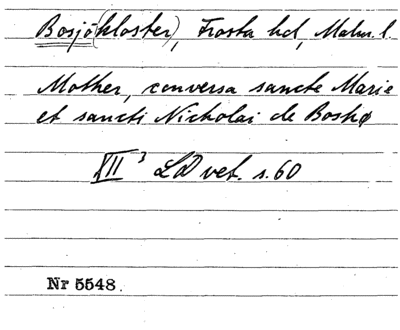 Bosjö(kloster), Frosta hd, Malm. l.
Mother, conversa sancte Marie
et sancti Nicholai de Boshø
XII³ LD vet. s. 60
Nr 5548.